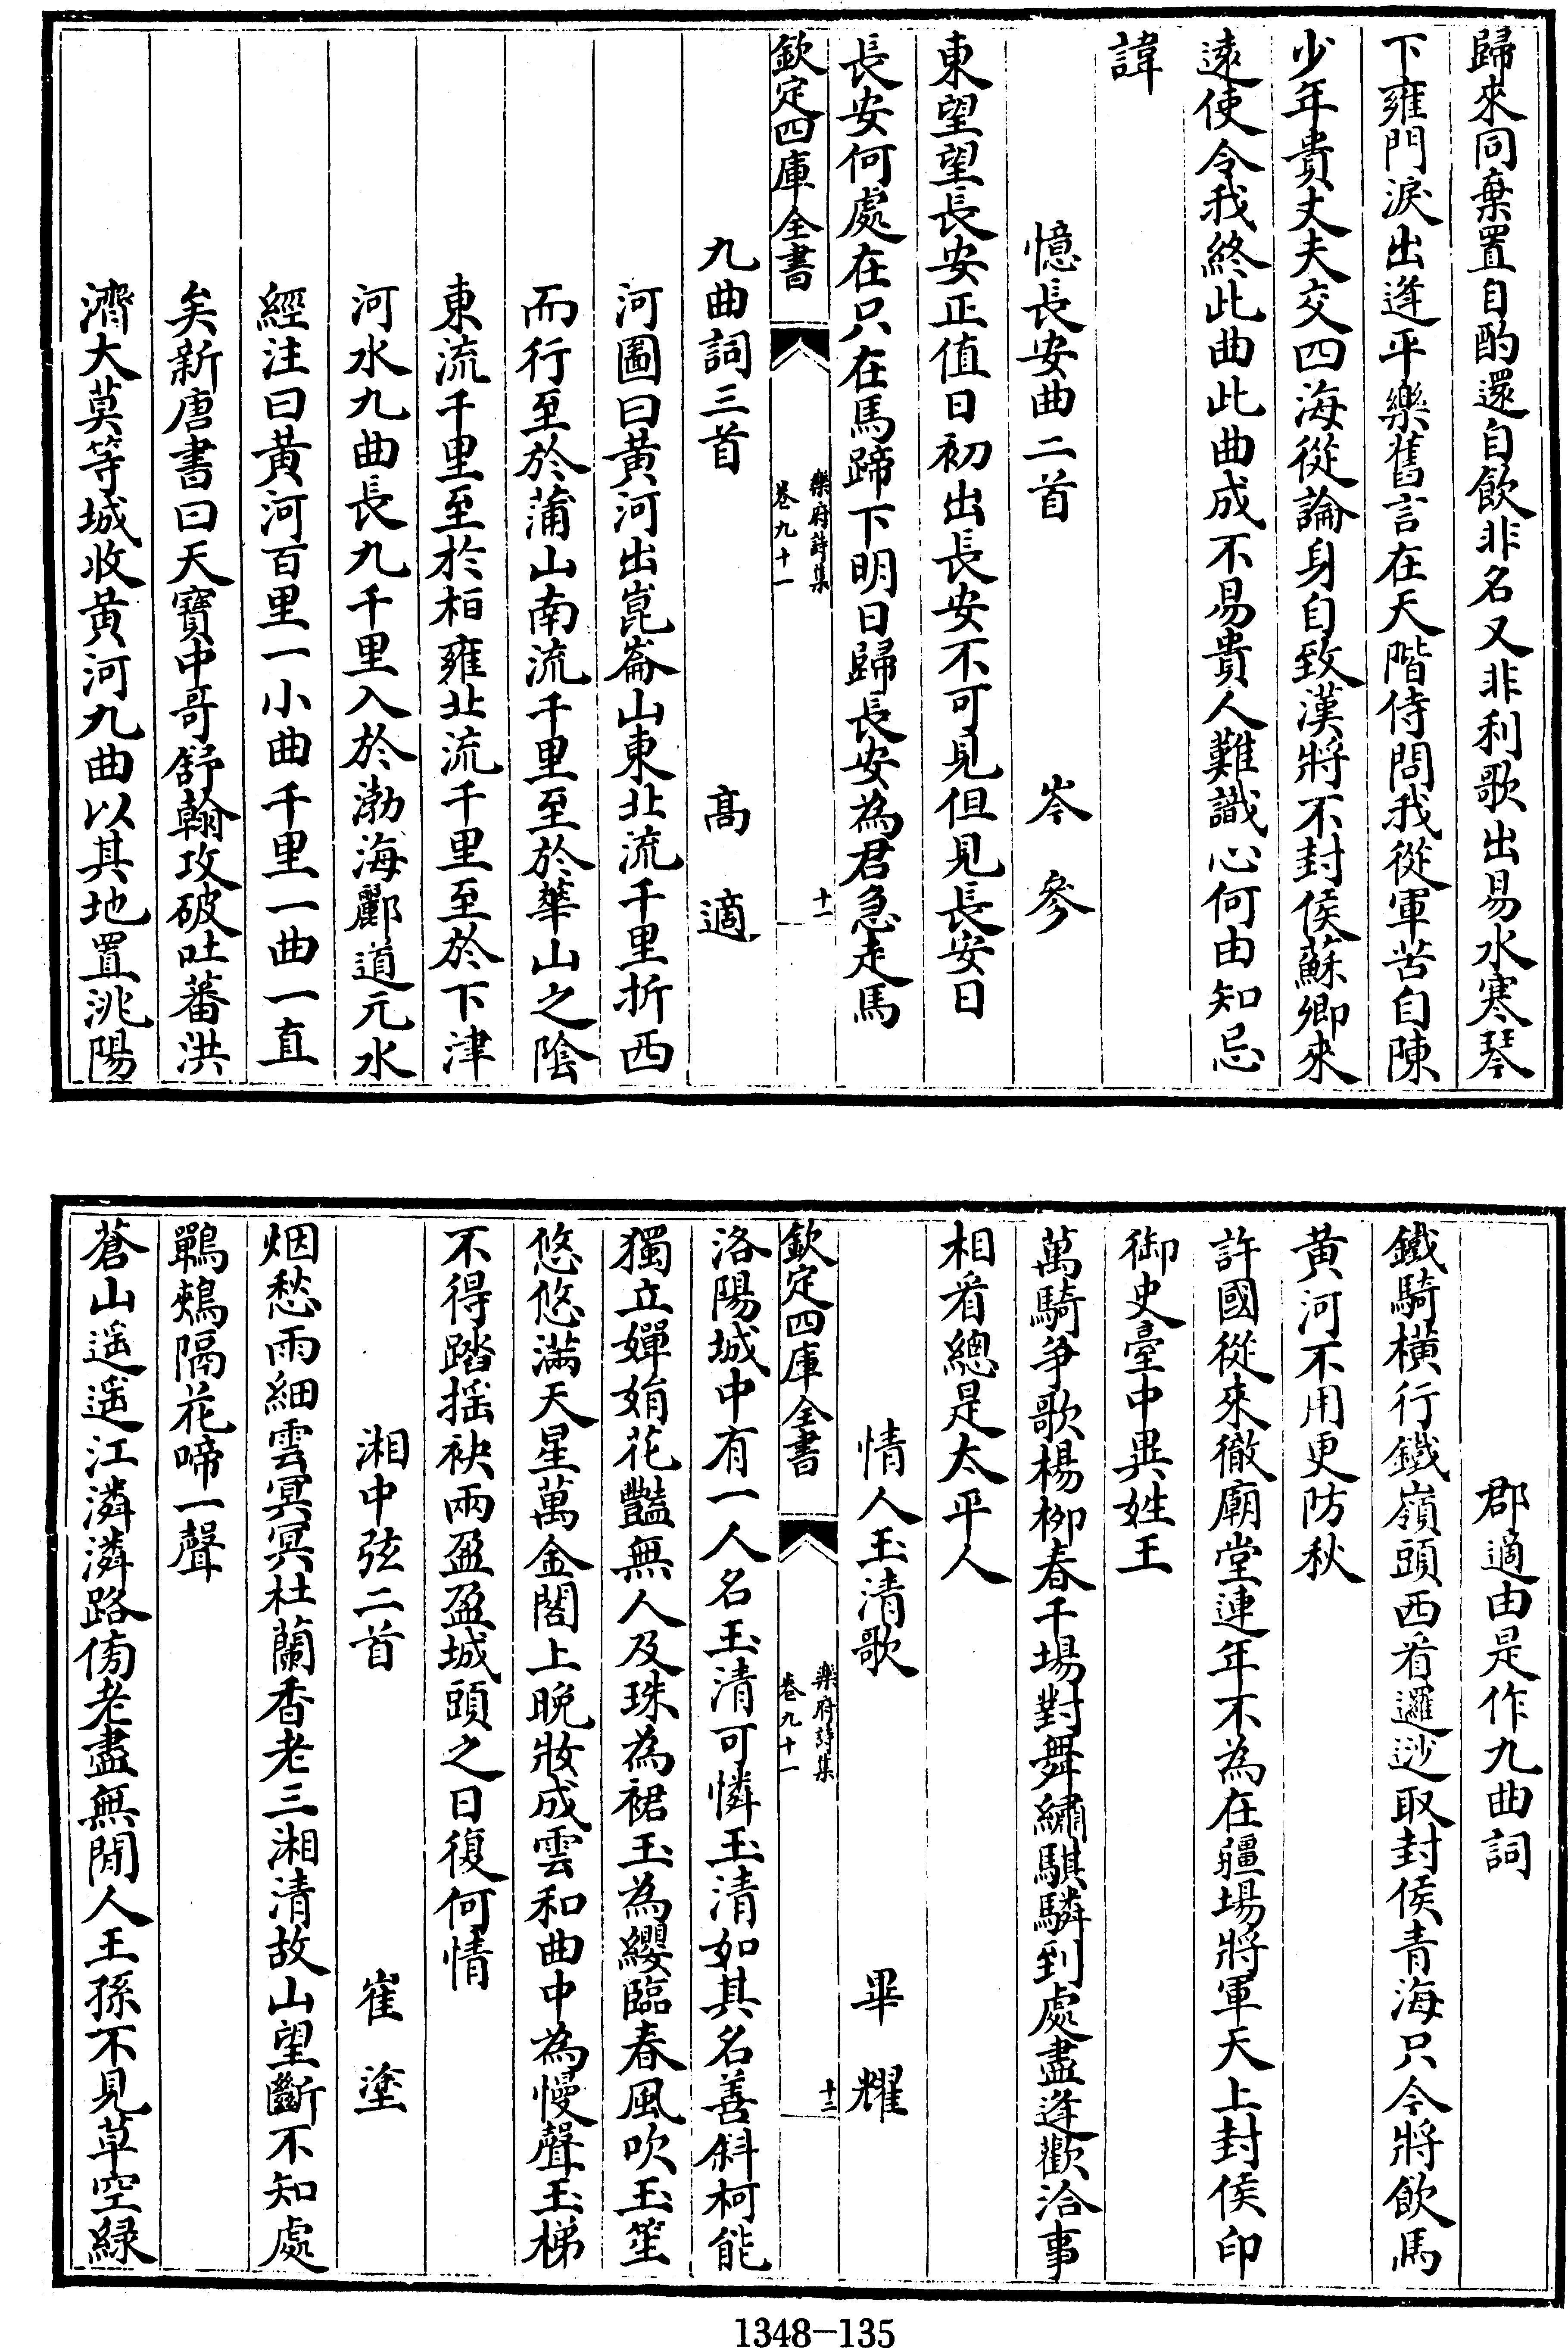 歸來同棄置自酌還自飲非名又非利歌出易水寒琴
下雍門淚出逢平樂舊言在天階侍問我從軍苦自陳
少年貴丈夫交四海從論身自致漢將不封侯蘇卿來
遠使令我終此曲此曲成不易貴人難識心何由知忌
諱
憶長安曲二首 岑參
東望望長安正值日初出長安不可見但見長安日
長安何處在只在馬蹄下明日歸長安為君急走馬
欽定四庫全書 樂府詩集 卷九十一 十一
九曲詞三首 高適
河圖曰黄河出崑崙山東北流千里折西
而行至於蒲山南流千里至於華山之陰
東流千里至於桓雍北流千里至於下津
河水九曲長九千里入於渤海酈道元水
經注曰黃河百里一小曲千里一曲一直
矣新唐書曰天寶中哥舒翰攻破吐蕃洪
濟大莫等城收黄河九曲以其地置洮陽
郡適由是作九曲詞
鐵騎橫行鐵嶺頭西看邏逤取封侯青海只今將飲馬
黄河不用更防秋
許國從來徹廟堂連年不為在疆場將軍天上封侯印
御史臺中異姓王
萬騎爭歌楊柳春千場對舞繡騏驎到處盡逢歡洽事
相看總是太平人
情人玉清歌 畢耀
欽定四庫全書 樂府詩集 卷九十一 十二
洛陽城中有一人名玉清可憐玉清如其名善斜柯能
獨立嬋娟花豔無人及珠為裙玉為纓臨春風吹玉笙
悠悠滿天星萬金閣上晚妝成雲和曲中為慢聲玉梯
不得踏摇袂兩盈盈城頭之日復何情
湘中弦二首 崔塗
烟愁雨細雲冥冥杜蘭香老三湘清故山望斷不知處
鶗鴂隔花啼一聲
蒼山遥遥江潾潾路傍老盡無閒人王孫不見草空緑
1348-135